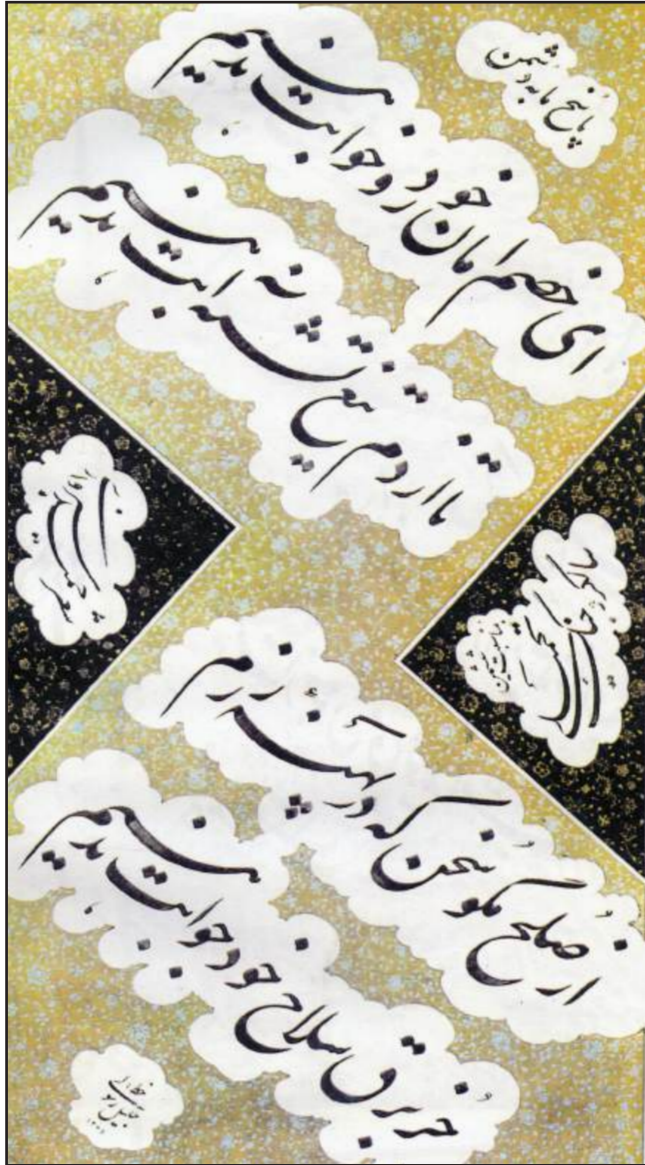 پاسخ ما به دشمن
ای خصم امان خورد و خوابت ندهیم
تا از دم تیغ تشنه آبت ندهیم
شعر
از صلح مگو سخن که در پهنه رزم
جز برق سلاح خود جوابت ندهیم
خط
جلیل رسولی